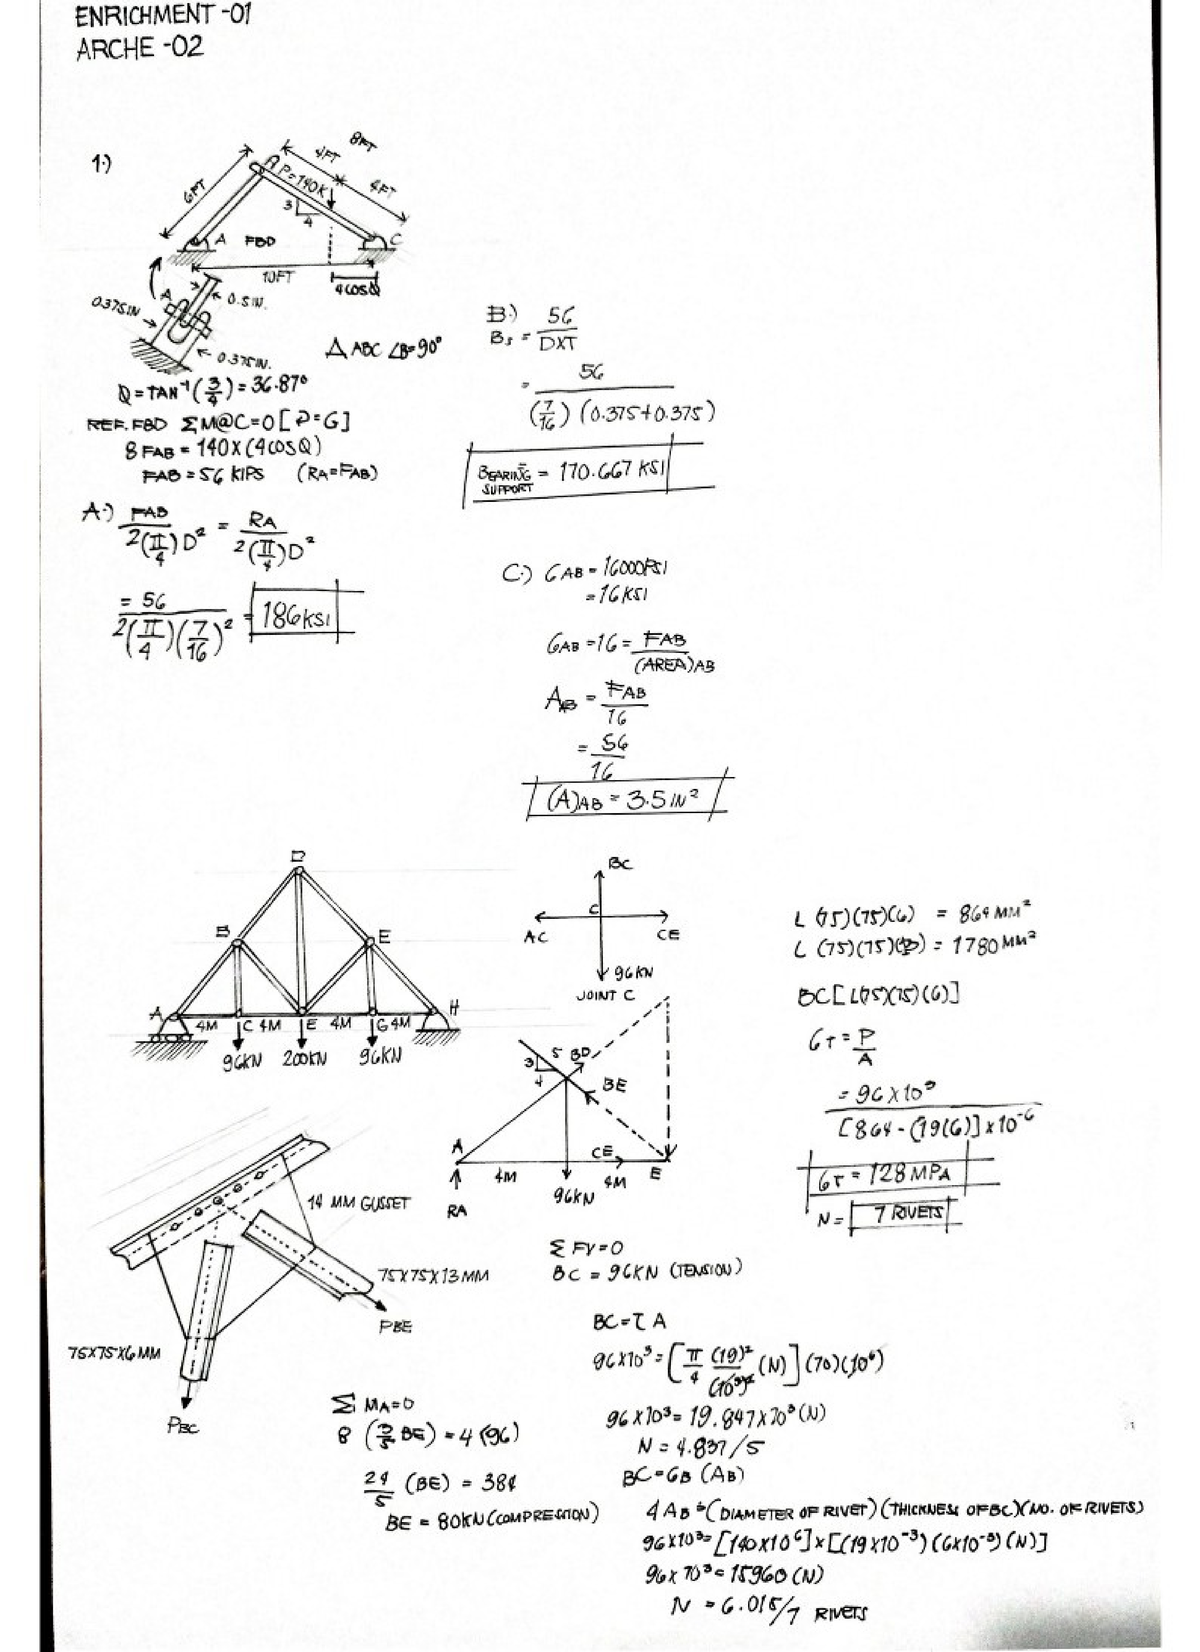 ENRICHMENT -01
ARCHE -02
1.)
8FT
4FT
6FT
P=140K
4FT
3
4
A FBD C
10FT
4COSQ
A
0.5IN.
0.375IN
0.375IN.
△ ABC ∠B=90°
Q=TAN⁻¹(3/4)=36.87°
REF. FBD ΣM@C=0 [2=G]
8 FAB = 140X(4COSQ)
FAB = 56 KIPS (RA=FAB)
A.) FAB / 2(π/4)D² = RA / 2(π/4)D²
= 56 / 2(π/4)(7/16)² = 186KSI
B.) 56
Bs = DXT
= 56 / (7/16)(0.375+0.375)
BEARING SUPPORT = 170.667 KSI
C.) GAB = 16000PSI
= 16KSI
GAB = 16 = FAB / (AREA)AB
AAB = FAB / 16
= 56 / 16
(A)AB = 3.5 IN²
D
B
E
A
C
E
G
H
4M
4M
4M
4M
96KN 200KN 96KN
BC
C
AC CE
96KN
JOINT C
3
4
5 BD
BE
A
CE
E
4M
4M
96KN
RA
L (75)(75)(6) = 864 MM²
L (75)(75)(13) = 1780 MM²
BC[L(75)(75)(6)]
Gτ = P/A
= 96 X 10³ / [864 - (19(6)] x 10⁻⁶
Gτ = 128 MPA
N = 7 RIVETS
14 MM GUSSET
75X75X13 MM
PBE
75X75X6 MM
PBC
Σ FV=0
BC = 96KN (TENSION)
Σ MA=0
8 (3/5 BE) = 4 (96)
24/5 (BE) = 384
BE = 80KN (COMPRESSION)
BC = τ A
96X10³ = [π/4 (19)²/(10³)² (N)] (70)(10⁶)
96 X 10³ = 19.847 X 10³ (N)
N = 4.837/5
BC = GB (AB)
4 AB = (DIAMETER OF RIVET)(THICKNESS OF BC)(NO. OF RIVETS)
96X10³ = [140X10⁶] X [(19X10⁻³)(6X10⁻³)(N)]
96 X 10³ = 15960 (N)
N = 6.015/7 RIVETS